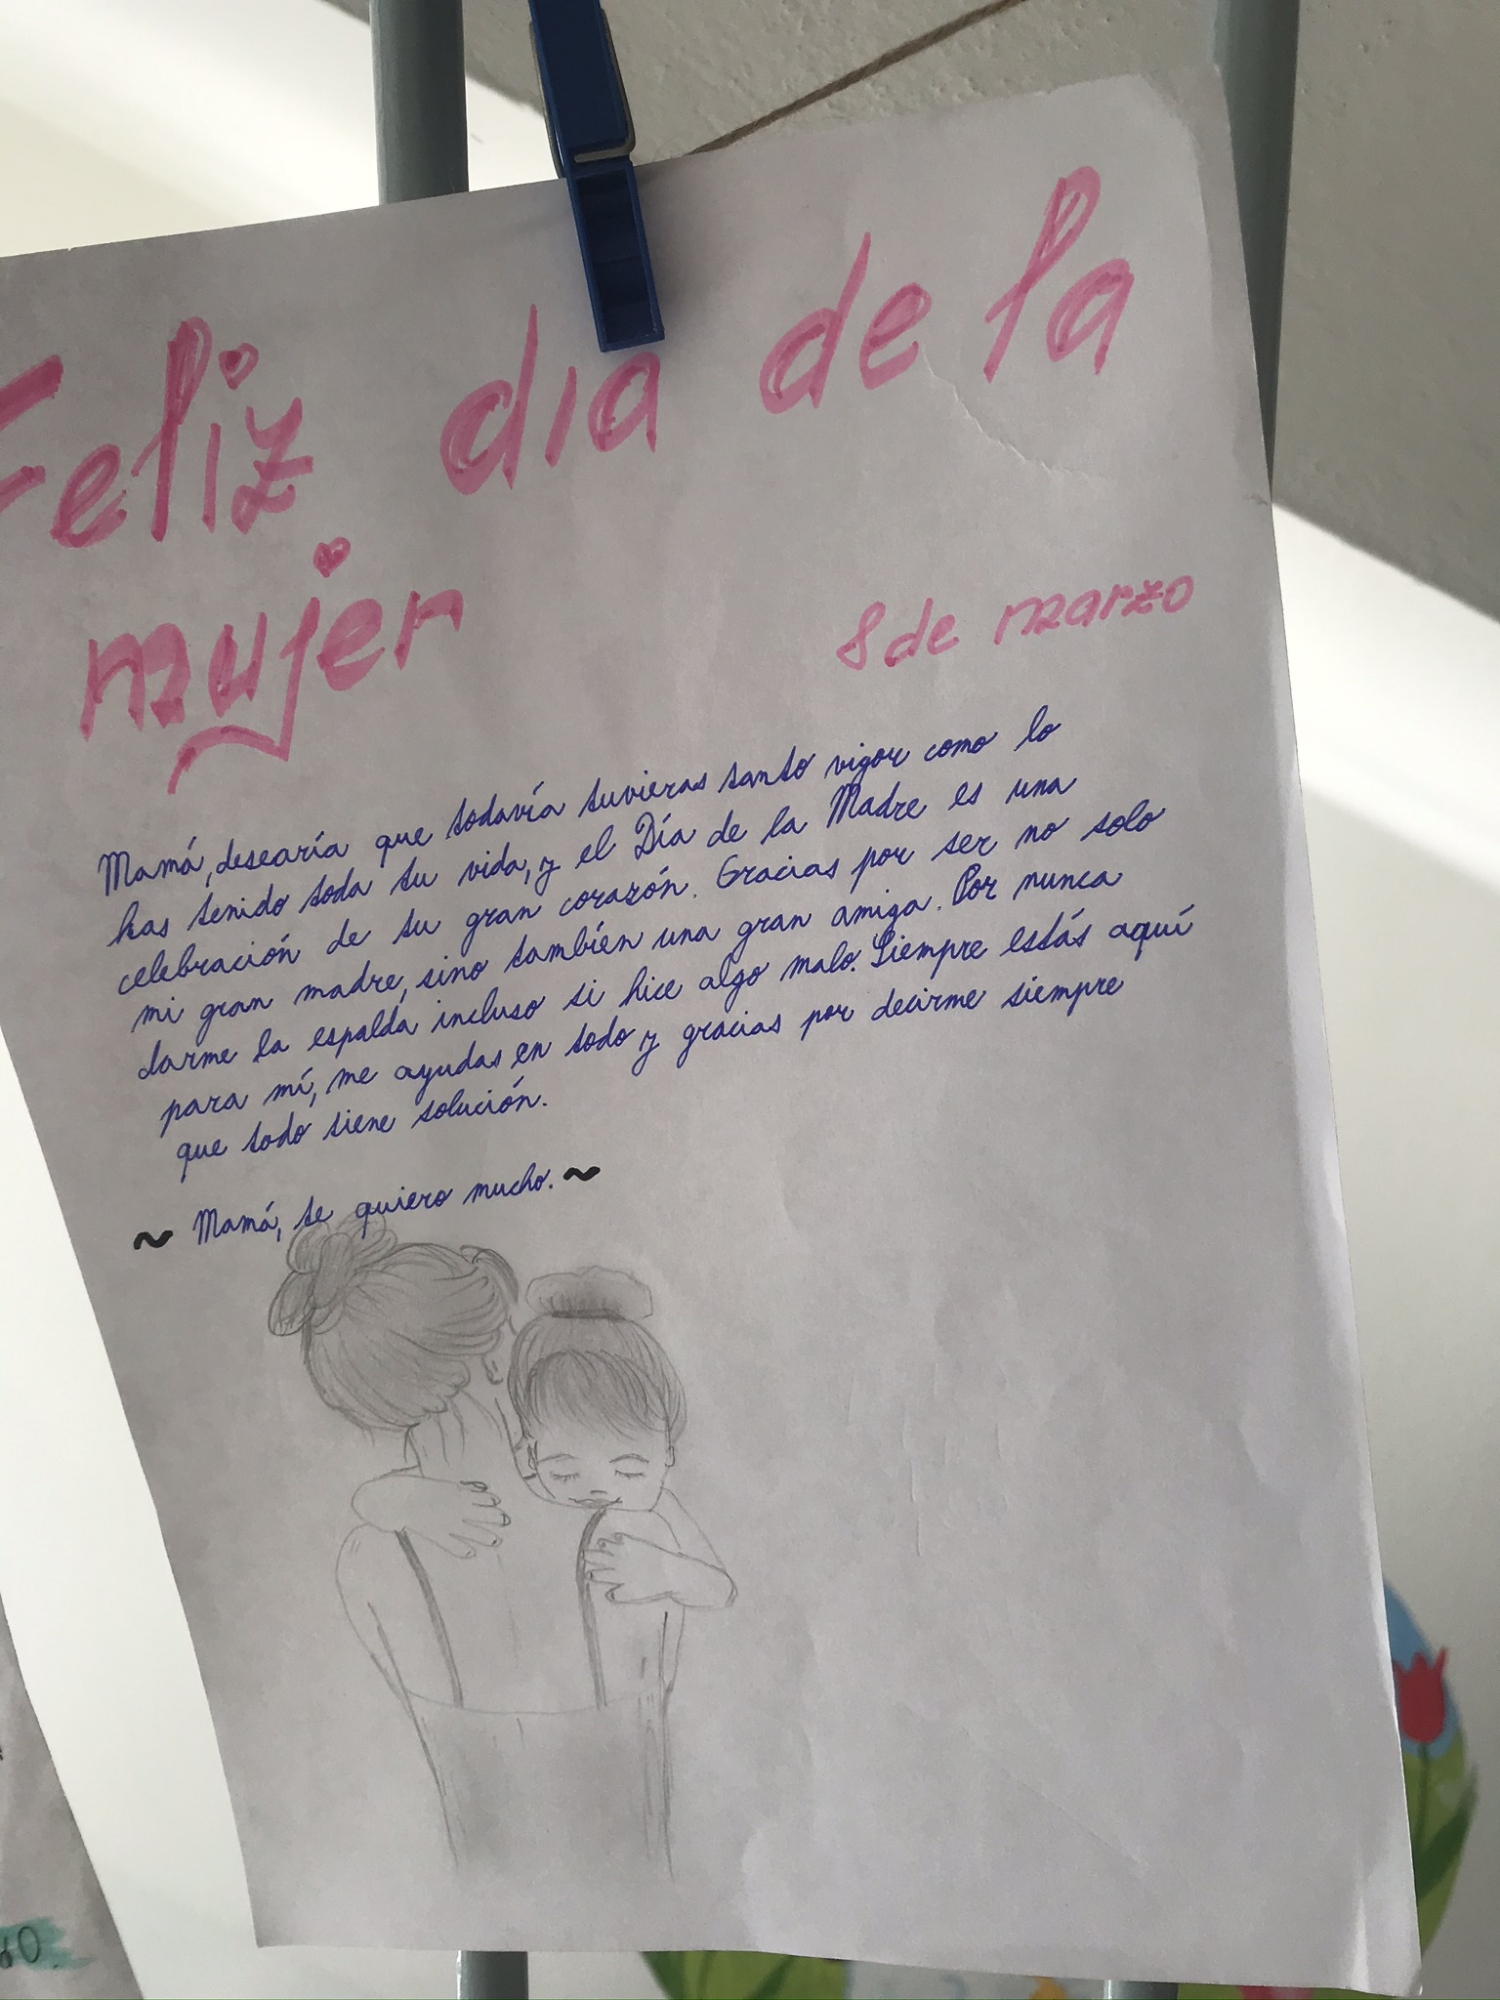 Feliz dia de la
mujer
8 de marzo
Mamá, desearía que todavía tuvieras tanto vigor como lo
has tenido toda tu vida, y el Día de la Madre es una
celebración de tu gran corazón. Gracias por ser no solo
mi gran madre, sino también una gran amiga. Por nunca
darme la espalda incluso si hice algo malo. Siempre estás aquí
para mí, me ayudas en todo y gracias por decirme siempre
que todo tiene solución.
~ Mamá, te quiero mucho. ~